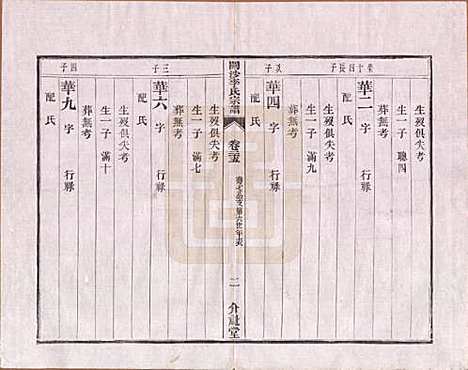 榮十四長子
華二 字 行祿
配氏
生歿俱失考
生一子 聰四
葬無考
次子
華四 字 行祿
配氏
生歿俱失考
生一子 滿九
葬無考
開沙李氏宗譜
卷三十五
二
介祉堂
三子
華六 字 行祿
配氏
生歿俱失考
生一子 滿七
葬無考
四子
華九 字 行祿
配氏
生歿俱失考
生一子 滿十
葬無考